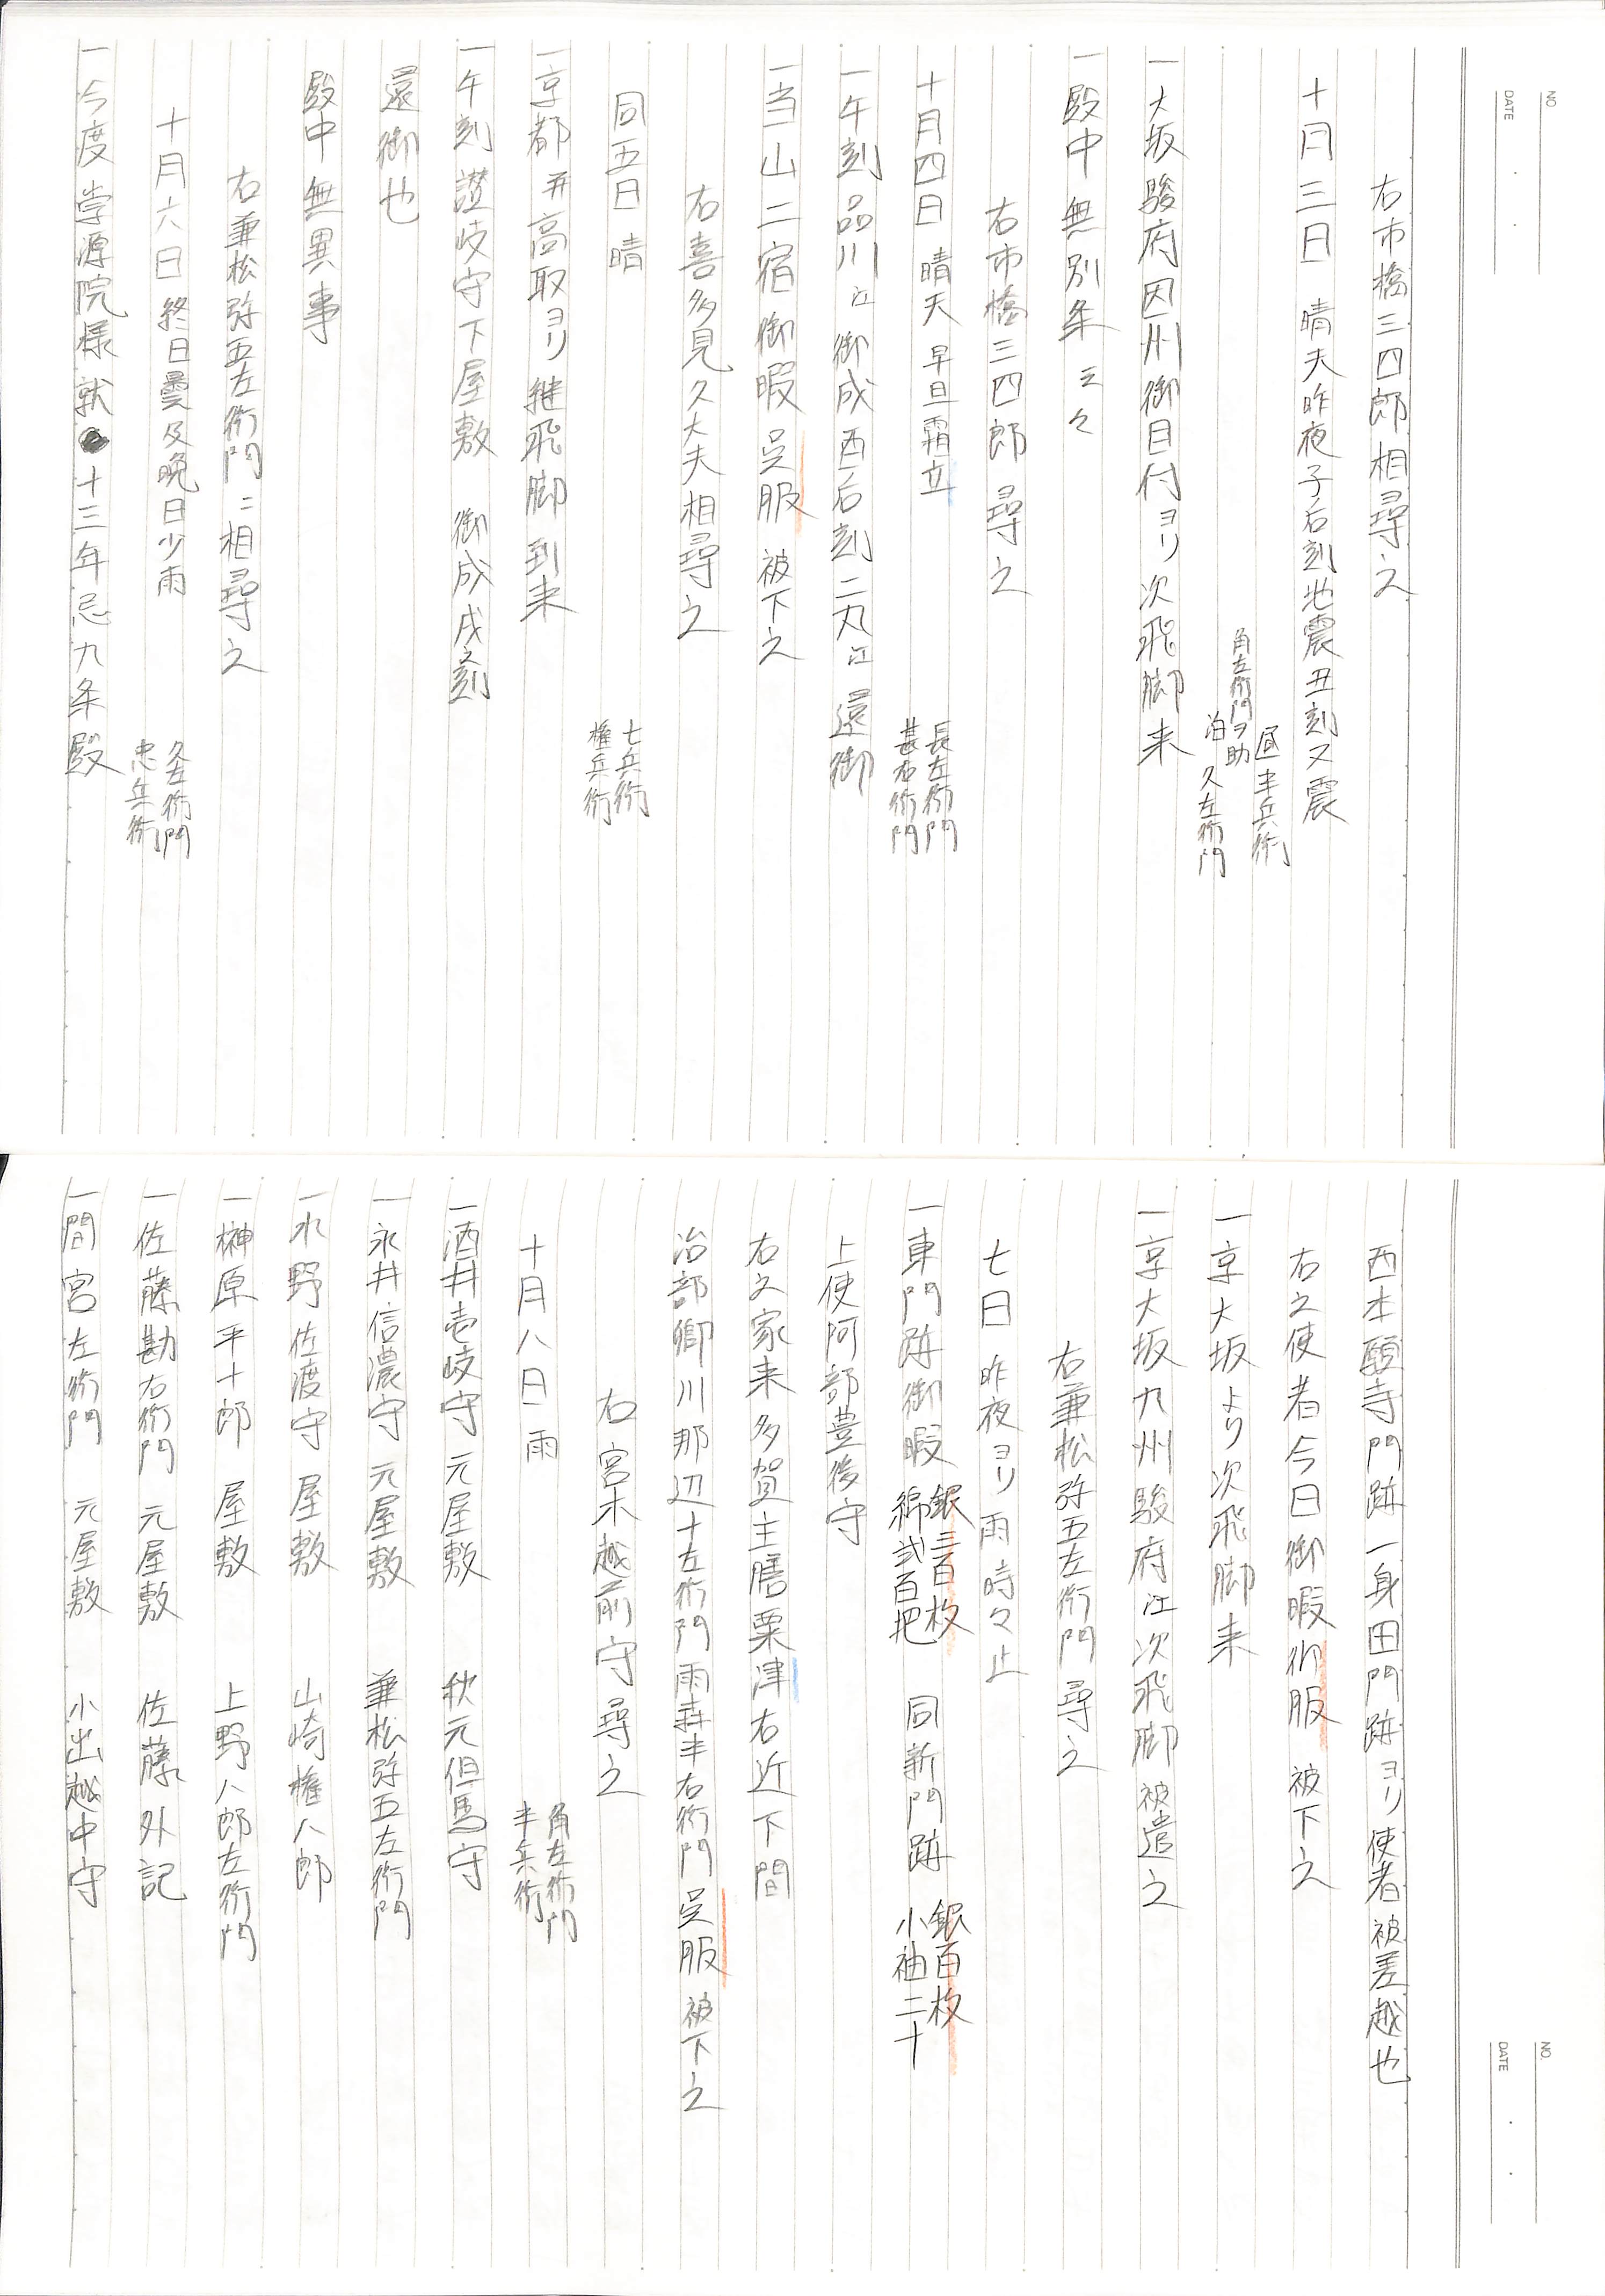 NO.
DATE
右市橋三四郎相尋之
十月三日 晴天昨夜子右刻地震丑刻又震
昼半兵衛
角左衛門ヲ助
泊 久左衛門
一大坂駿府因州御目付ヨリ次飛脚来
一殿中無別条云々
右市橋三四郎尋之
十月四日 晴天 早旦霜立
長左衛門
甚右衛門
一午刻品川江御成酉后刻二丸江還御
一当山二宿御暇呉服 被下之
右喜多見久大夫相尋之
同五日 晴
七兵衛
権兵衛
一京都并高取ヨリ継飛脚到来
一午刻讃岐守下屋敷 御成戌之刻
還御也
殿中無異事
右兼松弥五左衛門ニ相尋之
十月六日 終日曇及晩日少雨
久左衛門
忠兵衛
一今度崇源院様就十三年忌九条殿
NO.
DATE
西本願寺門跡一身田門跡ヨリ使者被差越也
右之使者今日御暇御服 被下之
一京大坂より次飛脚来
一京大坂九州駿府江次飛脚被遣之
右兼松弥五左衛門尋之
七日 昨夜ヨリ雨時々止
一東門跡御暇 銀三百枚 綿弐百把 同新門跡 銀百枚 小袖二十
上使阿部豊後守
右之家来多賀主膳粟津右近下間
治部卿川那辺十左衛門雨森半右衛門呉服被下之
右宮木越前守尋之
十月八日 雨
角左衛門
半兵衛
一酒井壱岐守 元屋敷 秋元但馬守
一永井信濃守 元屋敷 兼松弥五左衛門
一水野佐渡守 屋敷 山崎権八郎
一榊原平十郎 屋敷 上野八郎左衛門
一佐藤勘右衛門 元屋敷 佐藤外記
一間宮左衛門 元屋敷 小出越中守